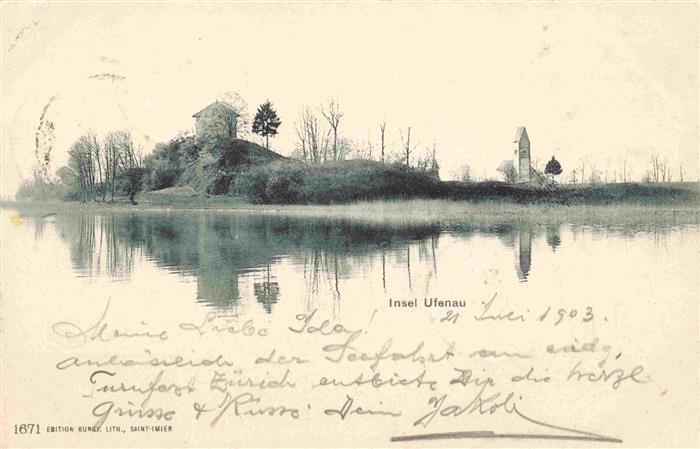 Insel Ufenau
21 Juli 1903.
Meine Liebe Ida!
anlässlich der Seefahrt am eidg.
Turnfest Zürich entbiete Dir die herzl
Grüsse & Küsse Dein Jakob
1671 EDITION BURGY, LITH., SAINT-IMIER